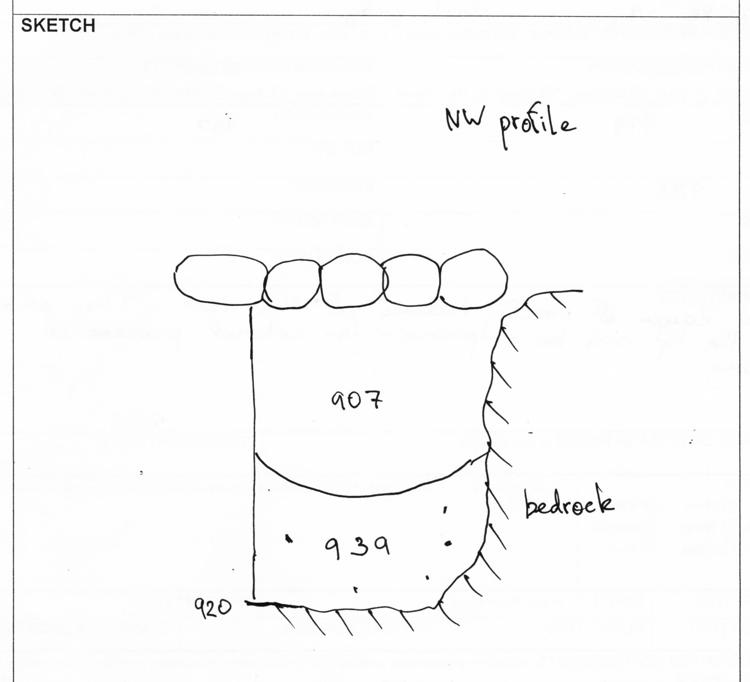 SKETCH
NW profile
907
bedrock
939
920